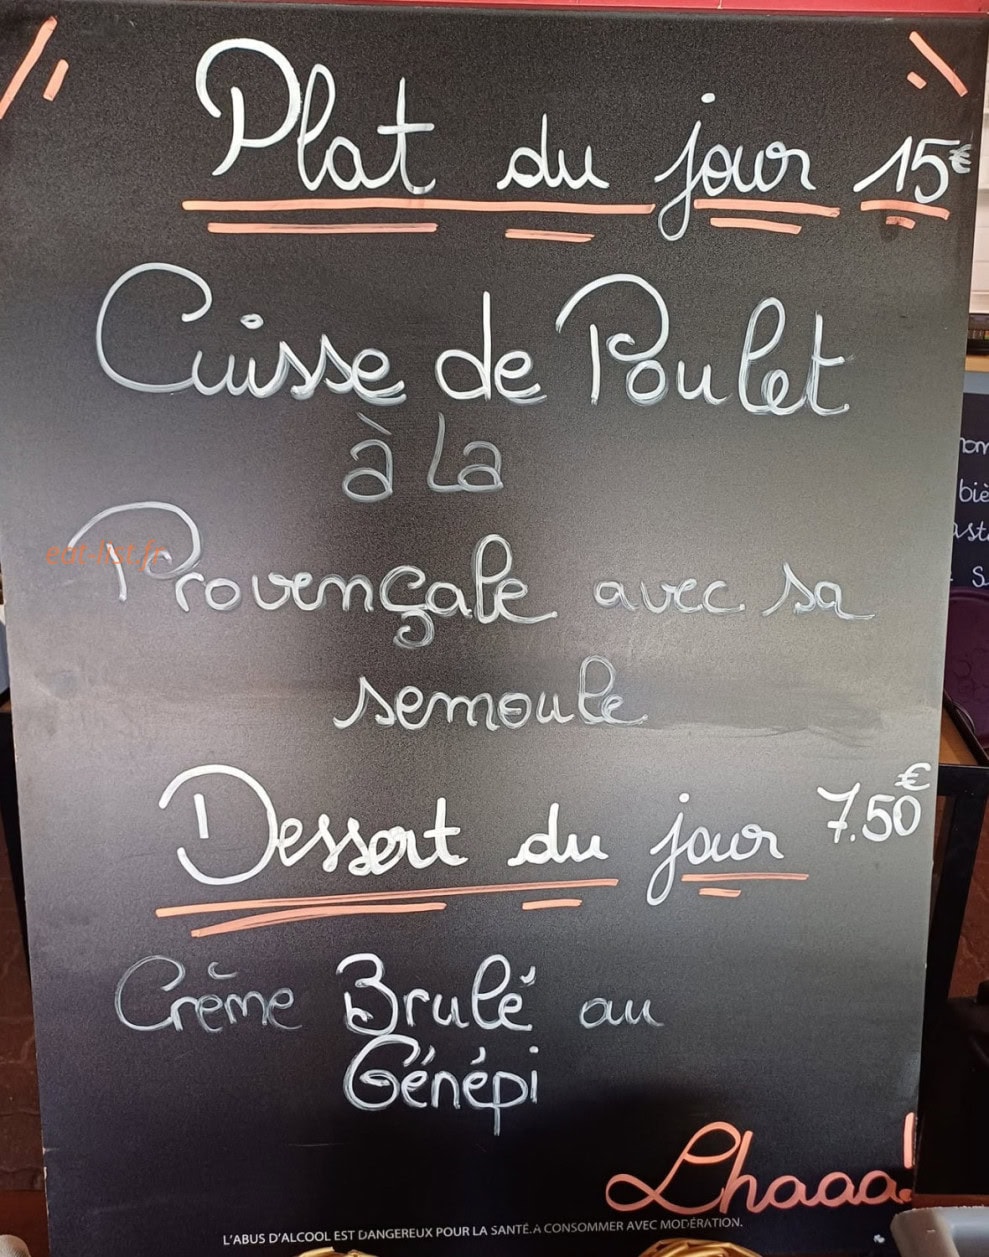 Plat du jour 15€
Cuisse de Poulet
à la
Provençale avec sa
semoule
eat-list.fr
Dessert du jour 7.50€
Crème Brulé au
Génépi
Lhaaa!
L'ABUS D'ALCOOL EST DANGEREUX POUR LA SANTÉ. A CONSOMMER AVEC MODÉRATION.